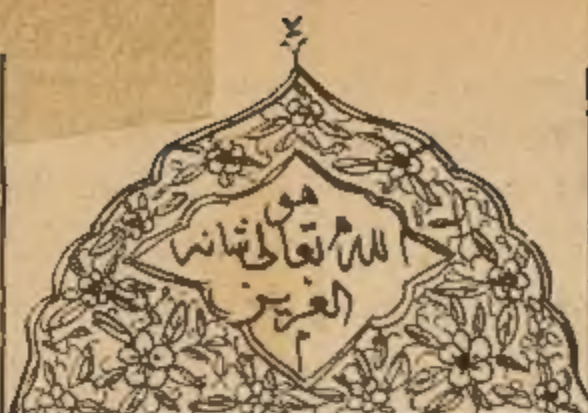 هو
الله تعالى شانه
العزيز